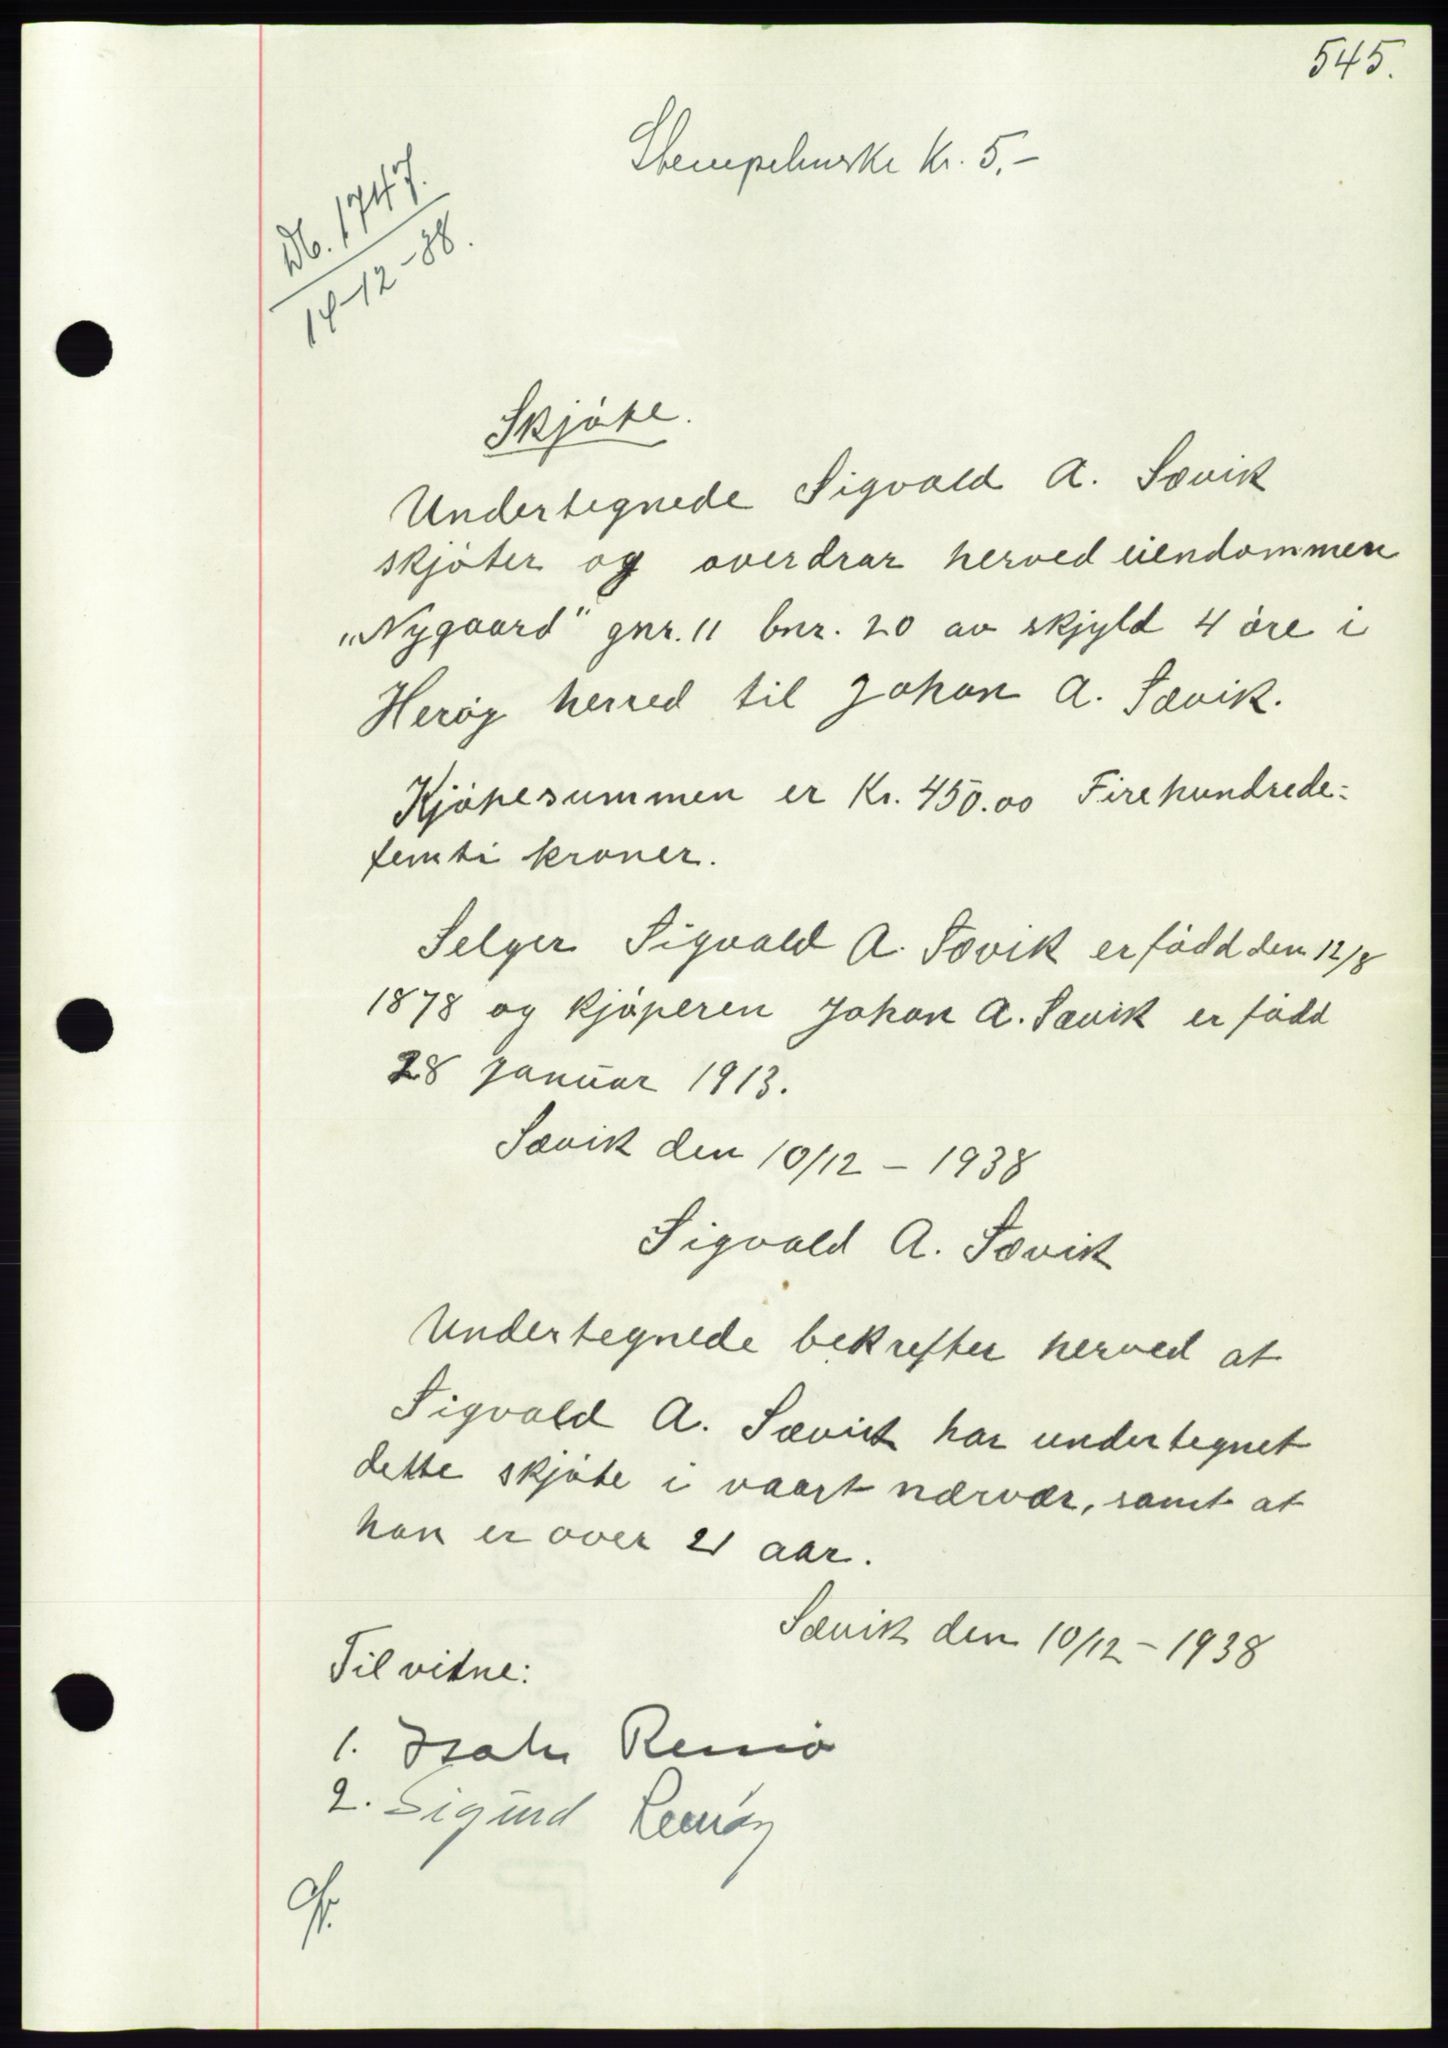 545.
Stempelmerke Kr. 5.-
Db. 1747.
14-12-38.
Skjóte.
Undertegnede Sigvald A. Sævik
skjóter og overdrar herved eiendommen
„Nygaard" gnr. 11 bnr. 20 av skjyld 4 óre i
Heróy herred til Johan A. Sævik.
Kjópesummen er Kr. 450.00 Firehundrede=
femti kroner.
Selger Sigvald A. Sævik er fódd den 12/8
1878 og kjóperen Johan A. Sævik er fódd
28 januar 1913.
Sævik den 10/12 - 1938
Sigvald A. Sævik
Undertegnede bekrefter herved at
Sigvald A. Sævik har undertegnet
dette skjóte i vaart nærvær, samt at
han er over 21 aar.
Sævik den 10/12 - 1938
Til vitne:
1. Isak Remó
2. Sigurd Remóy